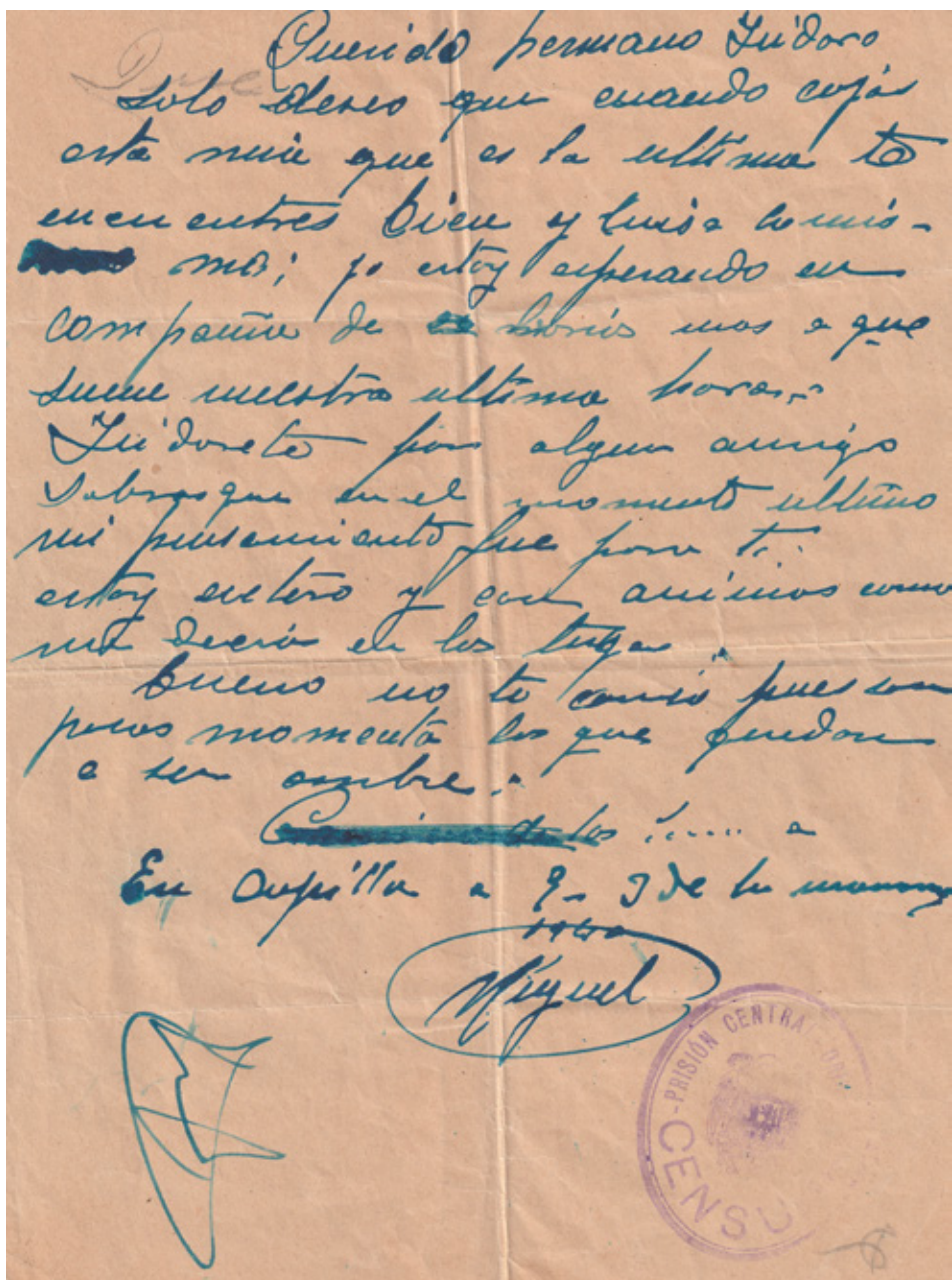 Querido hermano Isidoro
solo deseo que cuando cojas
esta mia que es la ultima te
encuentres bien y Luisa lo mis-
mo; yo estoy esperando en
compañia de unos a que
suene nuestra ultima hora.
Isidoreto por algun amigo
sabras que en el momento ultimo
mi pensamiento fue para ti.
estoy entero y con animos como
me decia en los
bueno no te pues son
pocos momentos los que quedan
a ser
de los
En Capilla a 9- 3 de la
1940
Miguel
PRISIÓN CENTRAL
CENSU